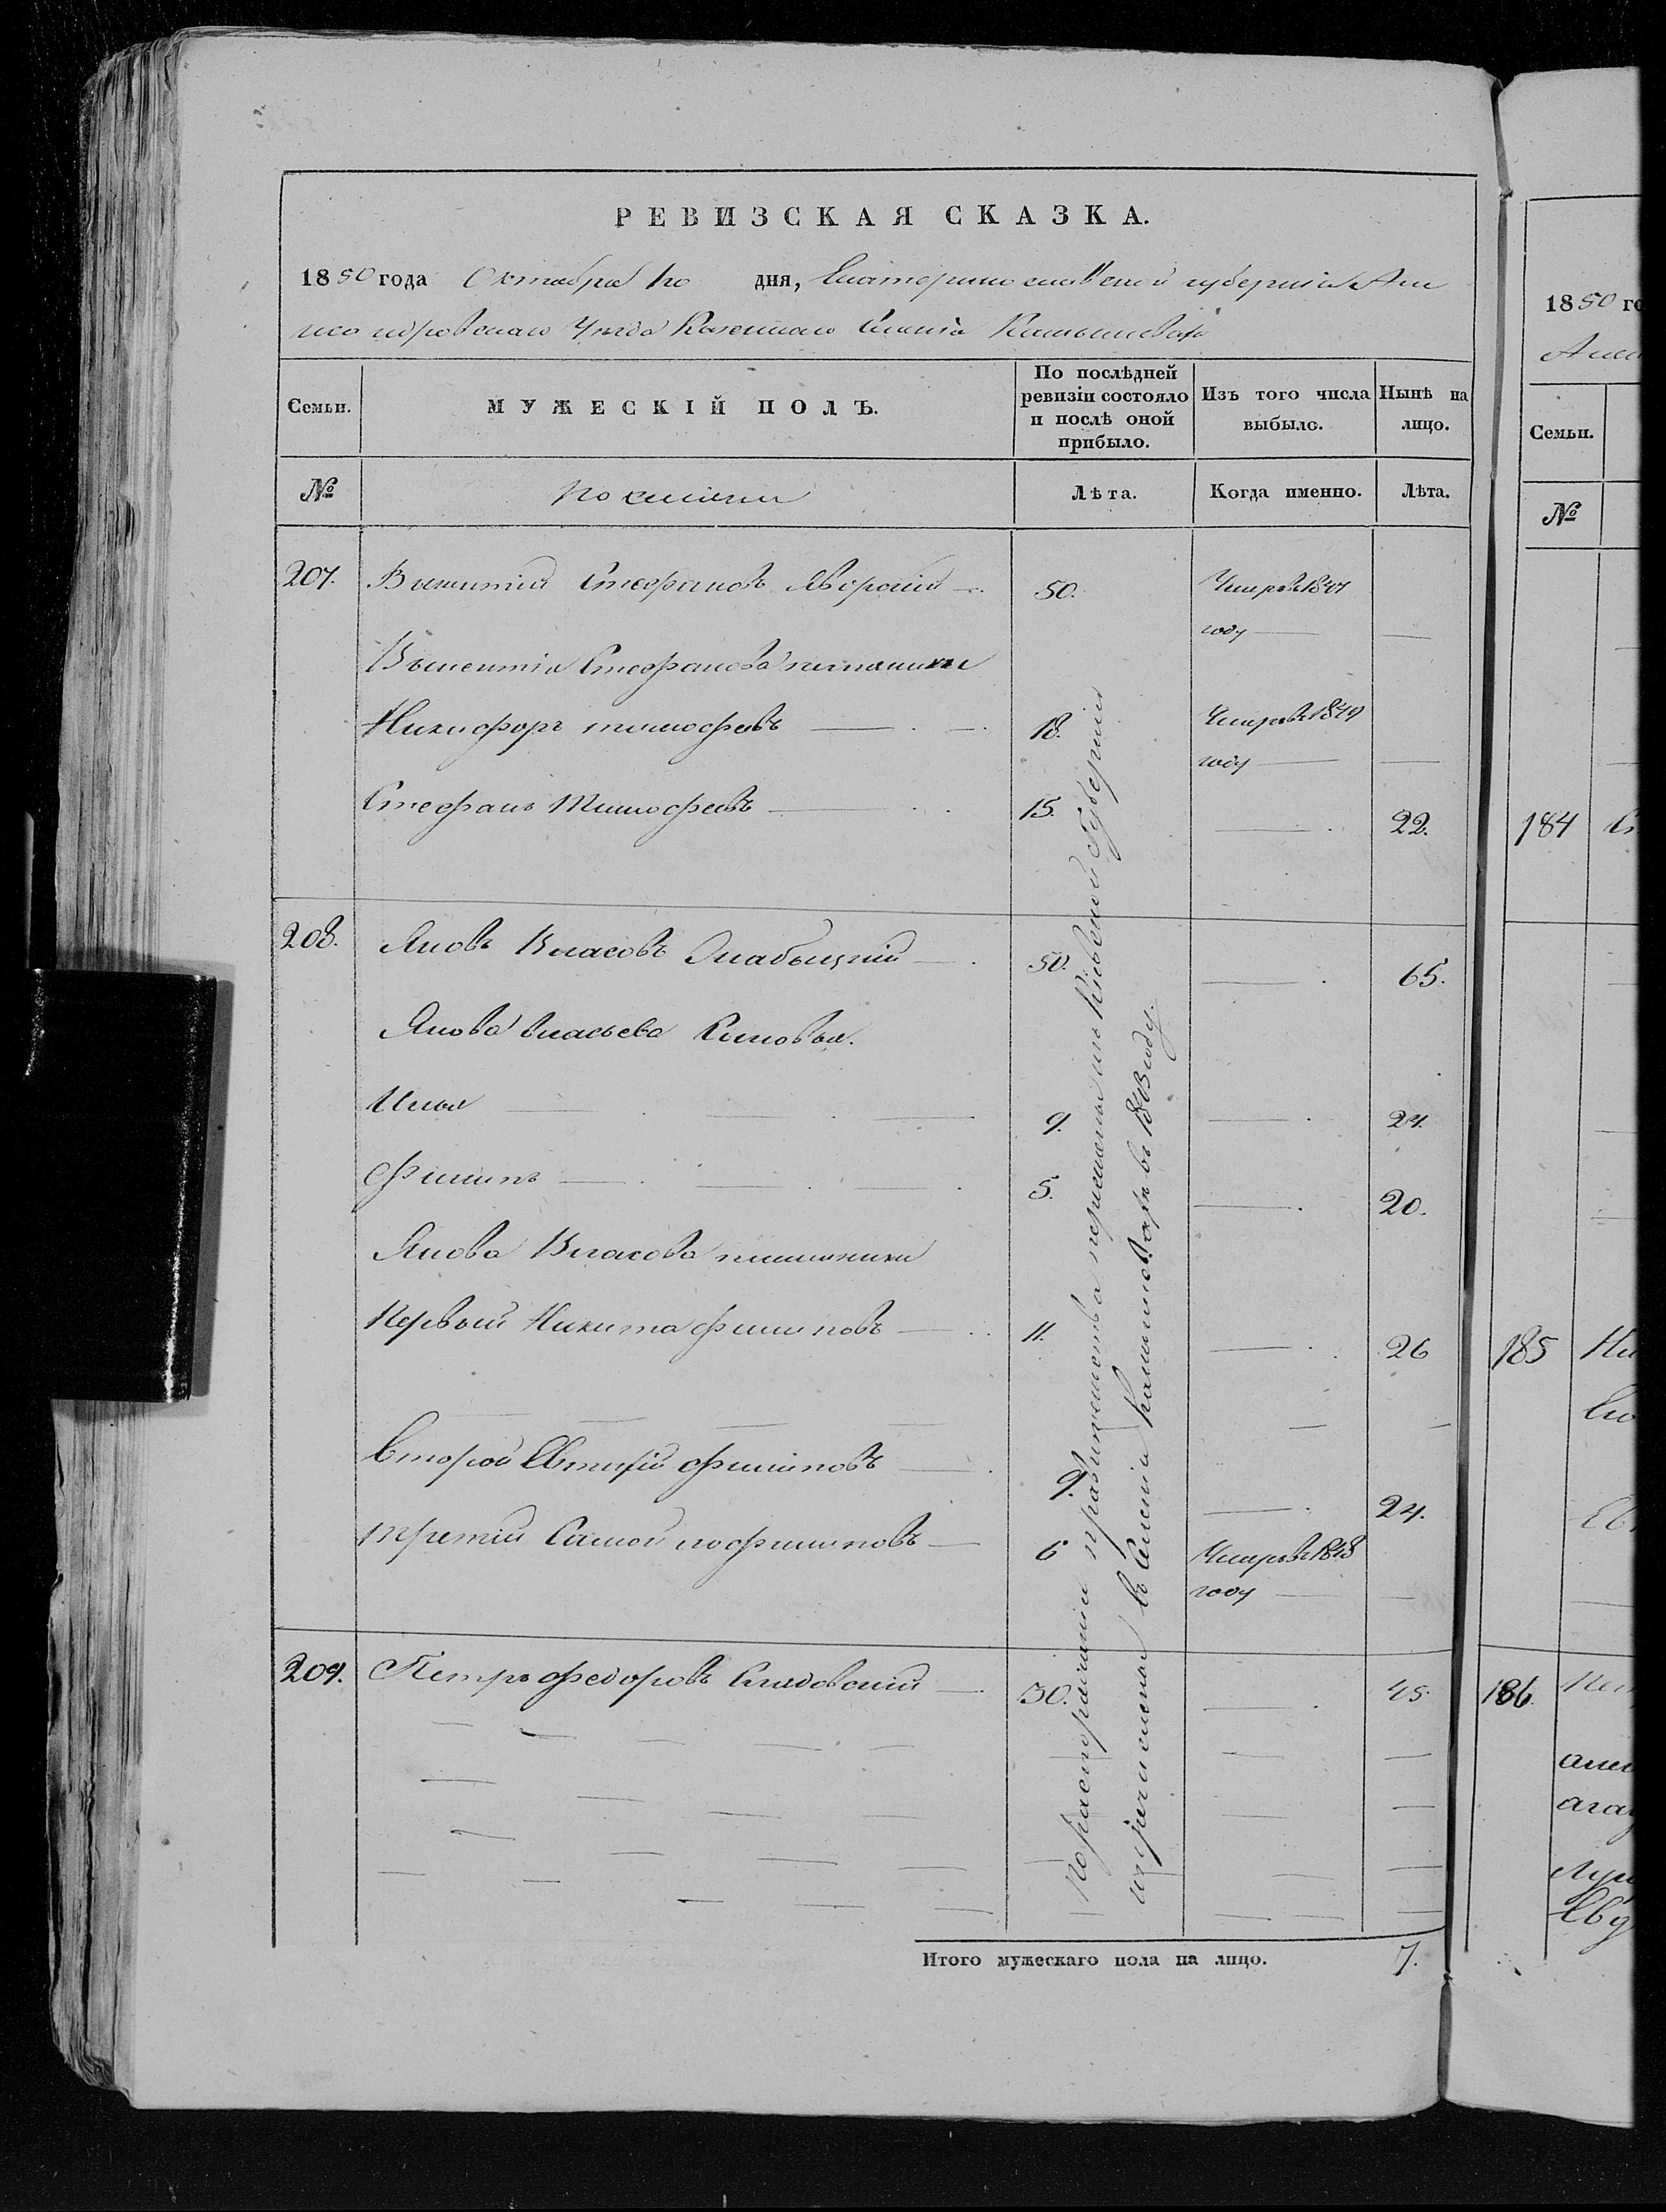 РЕВИЗСКАЯ СКАЗКА.
1850 года Октября 10 дня, Екатеринославской губерніи Алек
сандровскаго Уезда Казеннаго Селенія
Семьи.
МУЖЕСКІЙ ПОЛЪ.
По послѣдней
ревизіи состояло
и послѣ оной
прибыло.
Изъ того числа
выбыло.
Нынѣ на
лицо.
№
Лѣта.
Когда именно.
Лѣта.
207. Викентій Стефановъ Яворскій 50. Умеръ 1847
году
Викентія Стефанова племянники
Никифоръ тимофеевъ 18. Умеръ 1849
году
Стефанъ Тимофеевъ 15. 22.
208. Яковъ Власовъ Слабыцкій 50. 65.
Якова власьева Сыновья.
Илья 9. 24.
Филипъ 5. 20.
Якова Власова племянники
Первый Никита филиповъ 11. 26
второй Евтихій филиповъ 9. 24.
третій Самойло филиповъ 6 Умеръ 1848
году
209. Петръ Федоровъ 30. 45.
По распоряженію правительства переселены изъ Кіевской губерніи
и причислены въ Селеніи въ 1843 году.
Итого мужескаго пола на лицо. 7.
1850 го
Алек
Семьи.
№
184
185
186.